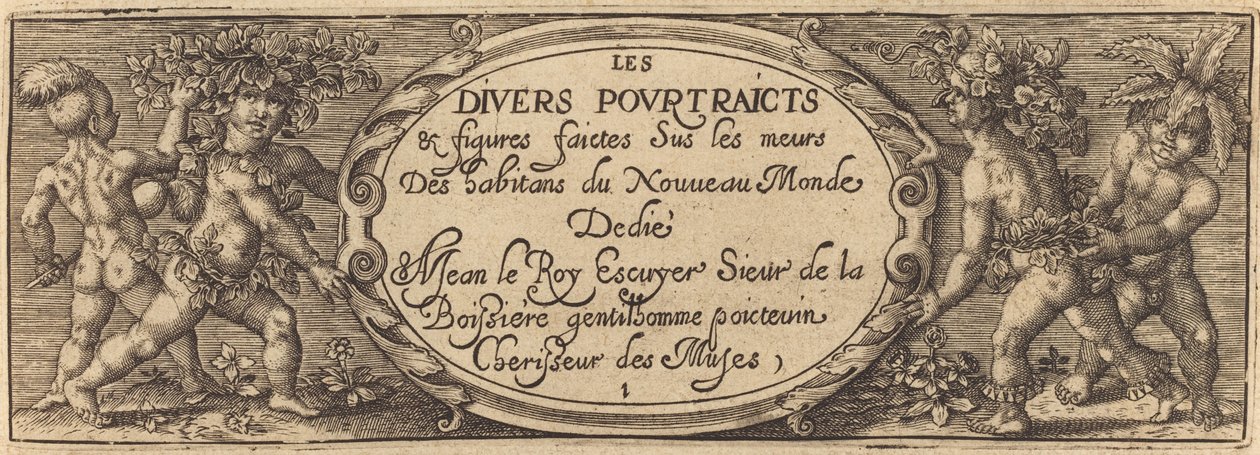 LES
DIVERS POVRTRAICTS
& figures faictes Sus les meurs
Des habitans du Nouueau Monde
Dedié
A Jean le Roy Escuyer Sieur de la
Boissiére gentilhomme poicteuin
Cherisseur des Muses,
1